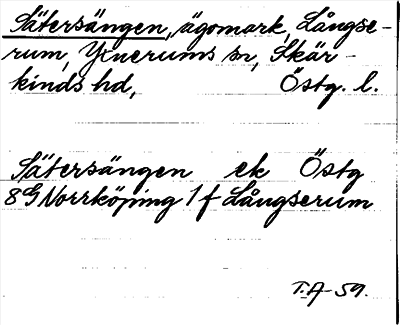 Sätersängen, ägomark, Långse-
rum, Yxnerums sn, Skär-
kinds hd, Östg. l.
Sätersängen ek Östg
8G Norrköping 1f Långserum
T.A-59.